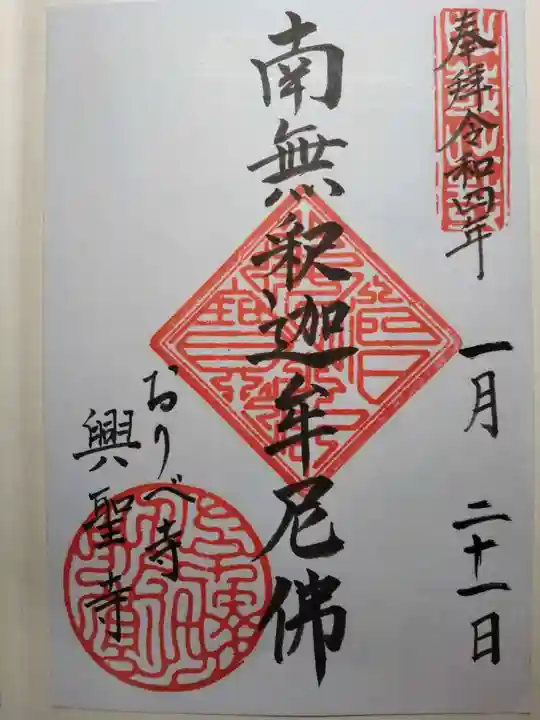 奉拝令和四年
一月二十一日
南無釈迦牟尼佛
おりべ寺
興聖寺